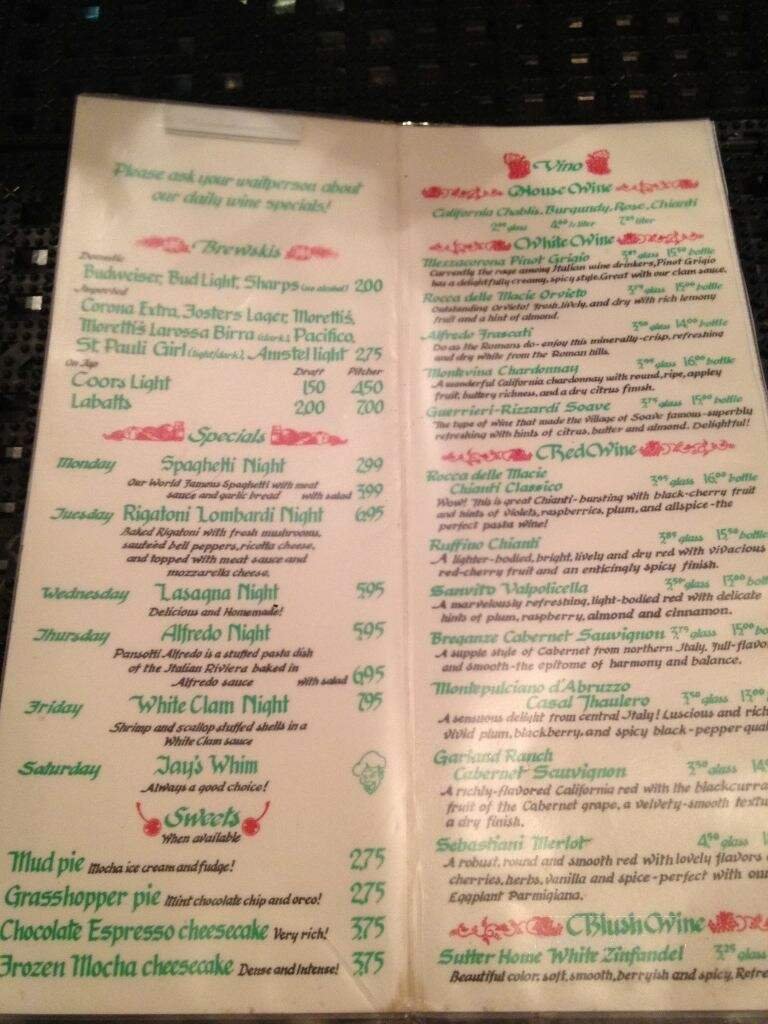 Please ask your waitperson about
our daily wine specials!
Brewskis
Domestic
Budweiser, Bud Light, Sharps (no alcohol) 2.00
Imported
Corona Extra, Fosters Lager, Moretti's,
Moretti's Larossa Birra (dark), Pacifico,
St. Pauli Girl (light/dark), Amstel light 2.75
On Tap Draft Pitcher
Coors Light 1.50 4.50
Labatts 2.00 7.00
Specials
Monday Spaghetti Night 2.99
Our World Famous Spaghetti with meat
sauce and garlic bread with salad 3.99
Tuesday Rigatoni Lombardi Night 6.95
Baked Rigatoni with fresh mushrooms,
sauteéd bell peppers, ricotta cheese,
and topped with meat sauce and
mozzarella cheese.
Wednesday Lasagna Night 5.95
Delicious and Homemade!
Thursday Alfredo Night 5.95
Pansotti Alfredo is a stuffed pasta dish
of the Italian Riviera baked in
Alfredo sauce with salad 6.95
Friday White Clam Night 7.95
Shrimp and scallop stuffed shells in a
White Clam sauce
Saturday Jay's Whim
Always a good choice!
Sweets
When available
Mud pie Mocha ice cream and fudge! 2.75
Grasshopper pie Mint chocolate chip and oreo! 2.75
Chocolate Espresso cheesecake Very rich! 3.75
Frozen Mocha cheesecake Dense and Intense! 3.75
Vino
House Wine
California Chablis, Burgundy, Rose, Chianti
glass liter
White Wine
Mezzacorona Pinot Grigio glass 15.50 bottle
Currently the rage among Italian wine drinkers, Pinot Grigio
has a delightfully creamy, spicy style. Great with our clam sauce.
Rocca delle Macie Orvieto 3.75 glass 15.00 bottle
Outstanding Orvieto! Fresh, lively, and dry with rich lemony
fruit and a hint of almond.
Alfredo Frascati 3.50 glass 14.00 bottle
Do as the Romans do-enjoy this minerally-crisp, refreshing
and dry white from the Roman hills.
Montevina Chardonnay glass 16.00 bottle
A wonderful California chardonnay with round, ripe, appley
fruit, buttery richness, and a dry citrus finish.
Guerrieri-Rizzardi Soave 3.75 glass 15.00 bottle
The type of wine that made the village of Soave famous-superbly
refreshing with hints of citrus, butter and almond. Delightful!
Red Wine
Rocca delle Macie
Chianti Classico glass 16.00 bottle
Wow! This is great Chianti-bursting with black-cherry fruit
and hints of violets, raspberries, plum, and allspice-the
perfect pasta wine!
Ruffino Chianti glass 15.50 bottle
A lighter-bodied, bright, lively and dry red with vivacious
red-cherry fruit and an enticingly spicy finish.
Sanvito Valpolicella 3.50 glass 13.00 bottle
A marvelously refreshing, light-bodied red with delicate
hints of plum, raspberry, almond and cinnamon.
Breganze Cabernet Sauvignon 3.75 glass 15.00
A supple style of Cabernet from northern Italy. Full-flavo
and smooth-the epitome of harmony and balance.
Montepulciano d'Abruzzo
Casal Thaulero 3.50 glass 13.00
A sensuous delight from central Italy! Luscious and rich
vivid plum, blackberry, and spicy black-pepper qual
Garland Ranch
Cabernet Sauvignon 3.50 glass
A richly-flavored California red with the blackcurra
fruit of the Cabernet grape, a velvety-smooth textu
a dry finish.
Sebastiani Merlot 4.50 glass
A robust, round and smooth red with lovely flavors
cherries, herbs, vanilla and spice-perfect with our
Eggplant Parmigiana.
Blush Wine
Sutter Home White Zinfandel 3.25 glass
Beautiful color, soft, smooth, berryish and spicy. Refre